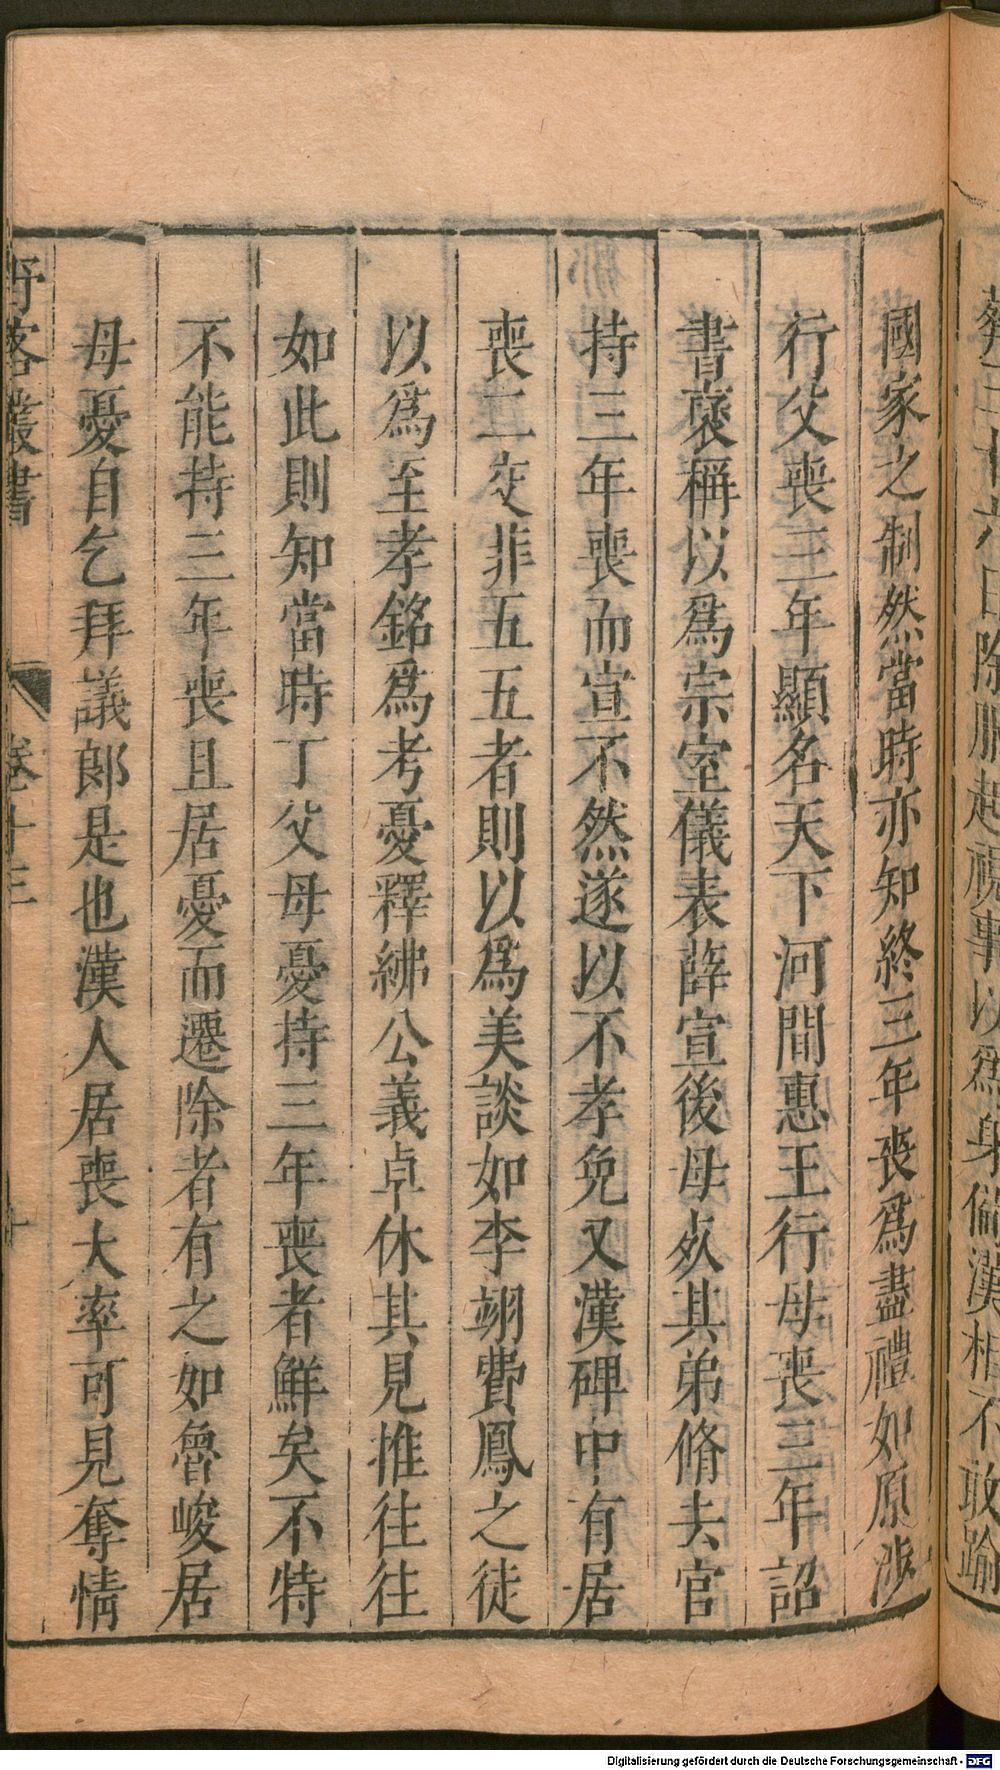 葬三十六日除服起視事以爲身備漢相不敢踰
國家之制然當時亦知終三年喪爲盡禮如原涉
行父喪三年顯名天下河間惠王行母喪三年詔
書襃稱以爲宗室儀表薛宣後母死其弟脩去官
持三年喪而宣不然遂以不孝免又漢碑中有居
喪二交非五五者則以爲美談如李翊費鳳之徒
以爲至孝銘爲考憂釋紼公義卓休其見推往往
如此則知當時丁父母憂持三年喪者鮮矣不特
不能持三年喪且居憂而遷除者有之如魯峻居
母憂自乞拜議郎是也漢人居喪大率可見奪情
野客叢書 卷十三 十
Digitalisierung gefördert durch die Deutsche Forschungsgemeinschaft - DFG